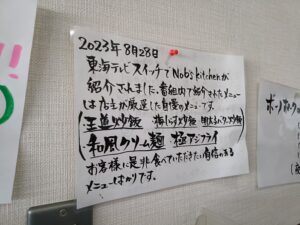 2023年8月28日
東海テレビスイッチでNobs Kitchenが
紹介されました。番組内で紹介されたメニュー
は店主が厳選した自慢のメニューです。
和風クリーム麺・極アジフライ
お客様に是非食べていただきたい自信のある
メニューばかりです。